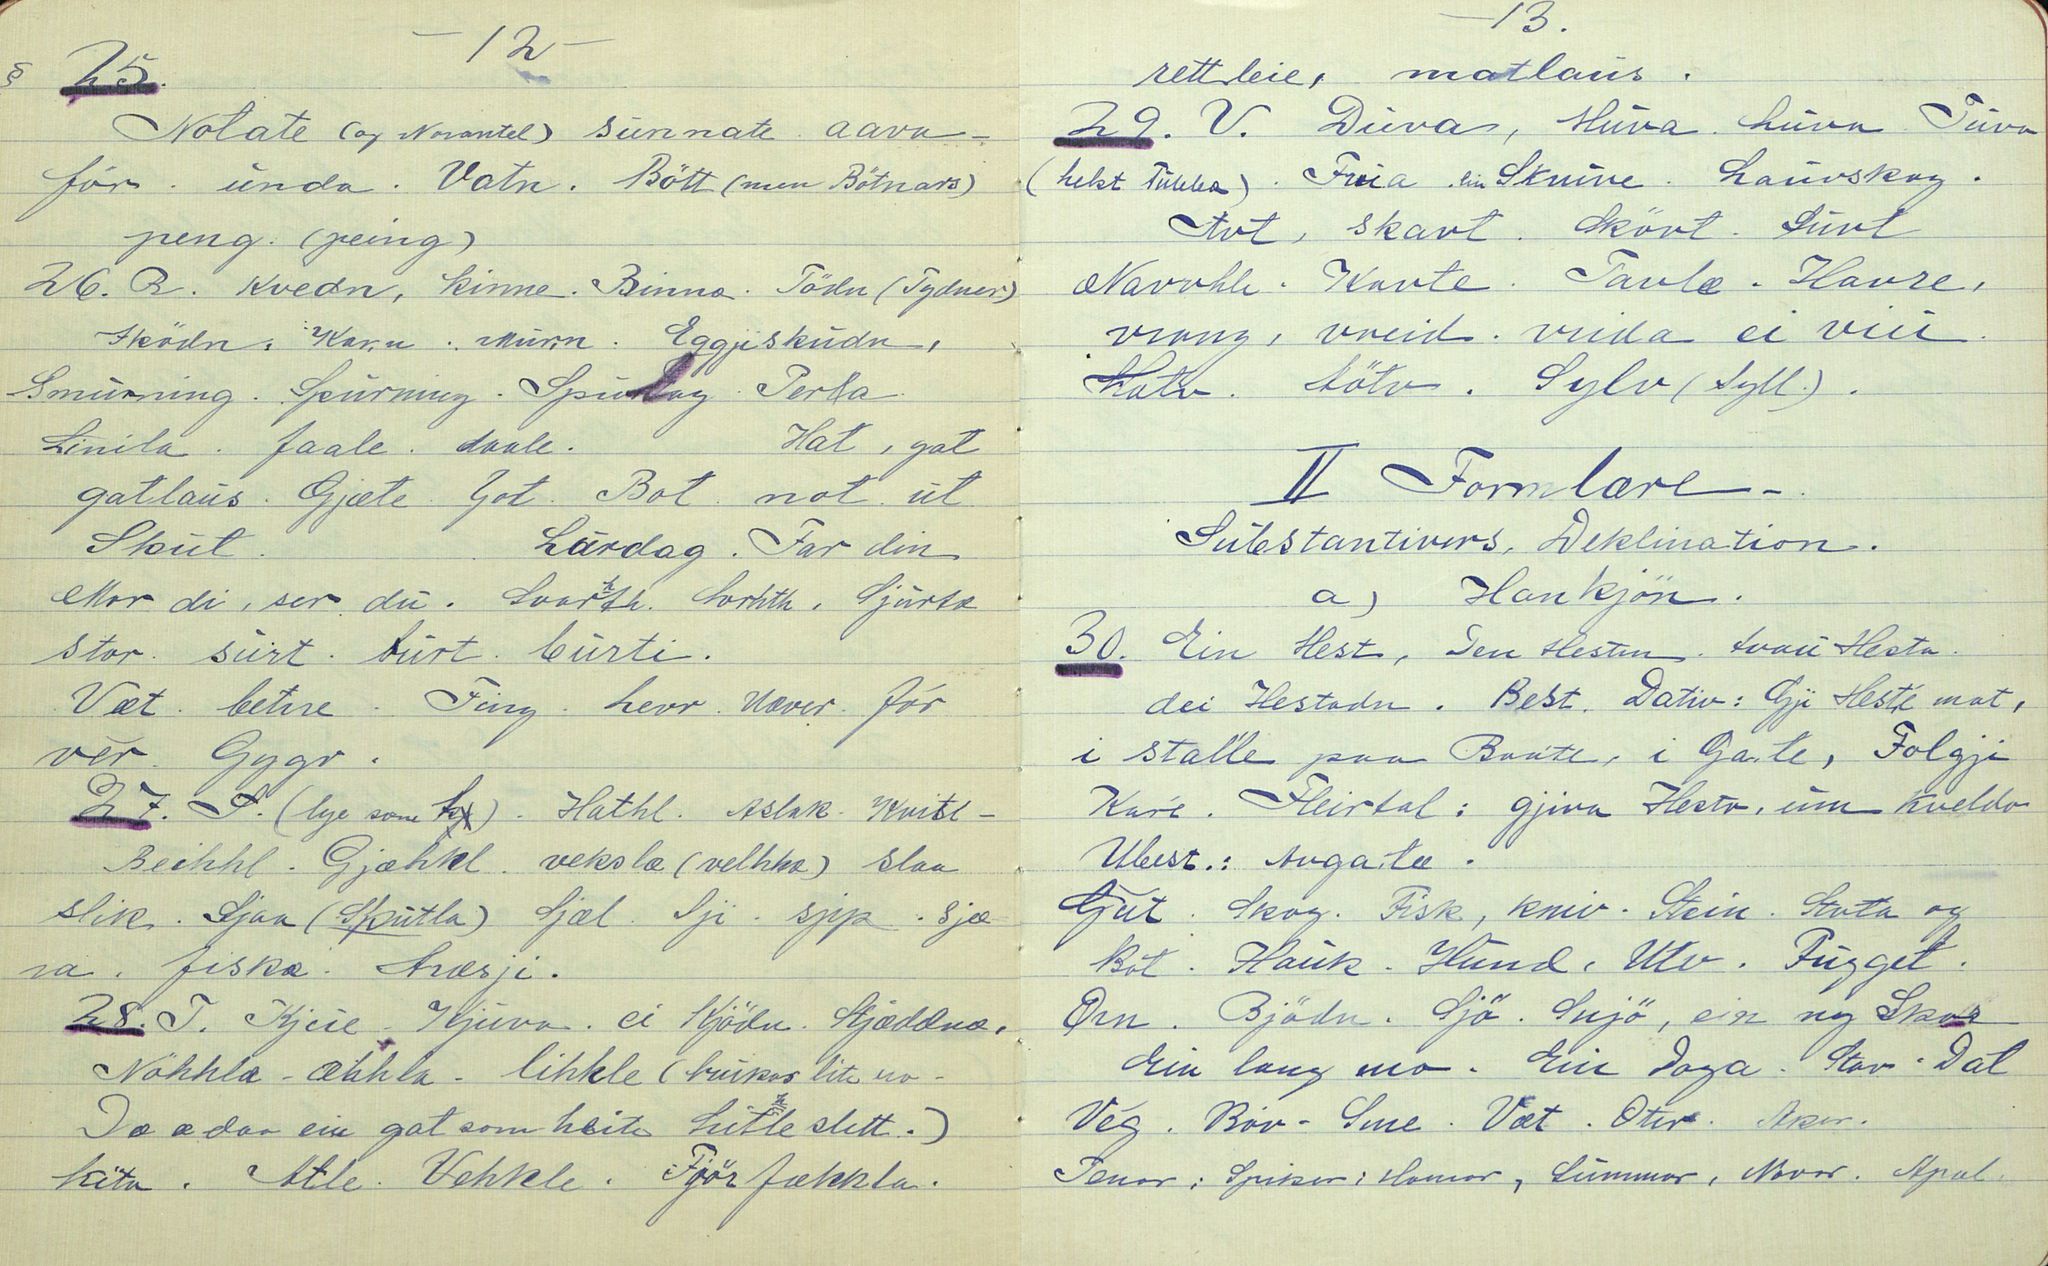 - 12 -
§ 25.
Nolate (og Norantel) sunnate aava-
fór. unda. Vatn. Bött (men Bötnars)
peng. (peing)
26. R. Kvedn, kinne. Binna. Tödn (Tydner)
Sködn. Korn. Murn. Eggjiskudn,
Smurning. Spurning. Perla
Linila. faale. daale. Hat, gat
gatlaus. Gjæte. Got. Bot. not. ut
Skut. Laurdag. Far din
Mor di, ser du. Svarth. Sjurta
stor. surt. burt. burti.
Væt. betre. Ting. hevr. Næver. fór
vér. Gygr.
27. S. (lye som). Hathl. Aslak. Kvitl-
Beihhl. Gjæhkl. veksla (velhka) slaa
slik. Sjaa (Skutla) Sjæl. Sji. sjpp. sjæ
ra. fiska. Træsji.
28. T. Kjeie. Kjuva. ei Kjödn. Stjæddna,
Nöhhla - æhhla - lihkle (bruikas lite no-
Da æ daa ein gat som heite Litleslett.)
kita. Atle. Vehkle. Fjör fækkla.
- 13.
rettleie, matlaus.
29. V. Duva, Huva. Luva. Tuva
(helst Tubba). Frua. ein Skruve. Lauvskog.
Tvt, skavt. Skövt. Survt
Navvhle. Kavte. Tavle. Havre,
vrong, vreid. vrida ei vrii
Kalv. Sölv. Sylv (Syll).
II Formlære -
Substantivers, Deklination.
a) Hankjön.
30. Ein Hest, Den Hesten. tvau Hesta.
dei Hestadn. Best. Dativ: Gji Heste mat,
i stalle paa Baate, i Gate, Folgji
Kare. Fleirtal: gjiva Hesto, um kveldo
Ubest.: Avgate.
Gut. Skog. Fisk, kniv. Stein. Stota og
Bót. Hauk. Hund, Ulv. Fugget.
Orn. Bjödn. Sjö. Snjö, ein ny Skor
Ein lang mo. Ein Daga. Stav. Dal
Veg. Bóv - Sme. Væt. Oter. Aker.
Tenar, Spiker, Hamar, Summar, Navar. Apal.